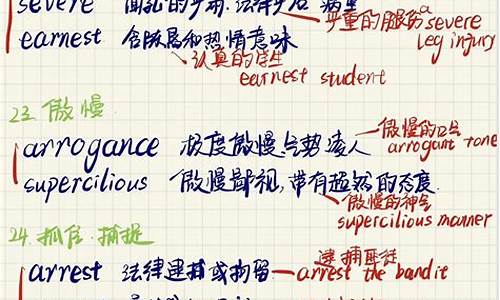 severe
严重的腿伤 a severe
leg injury
earnest 含脏局和热情意味
认真的学生
earnest student
23. 傲慢
arrogance 极度傲慢，气势凌人
傲慢的口气
arrogant tone
supercilious 傲慢鄙视，带有超然的态度.
傲慢的神气
supercilious manner
24. 抓住. 捕捉
arrest 法律逮捕或拘留
逮捕匪徒
arrest the bandit